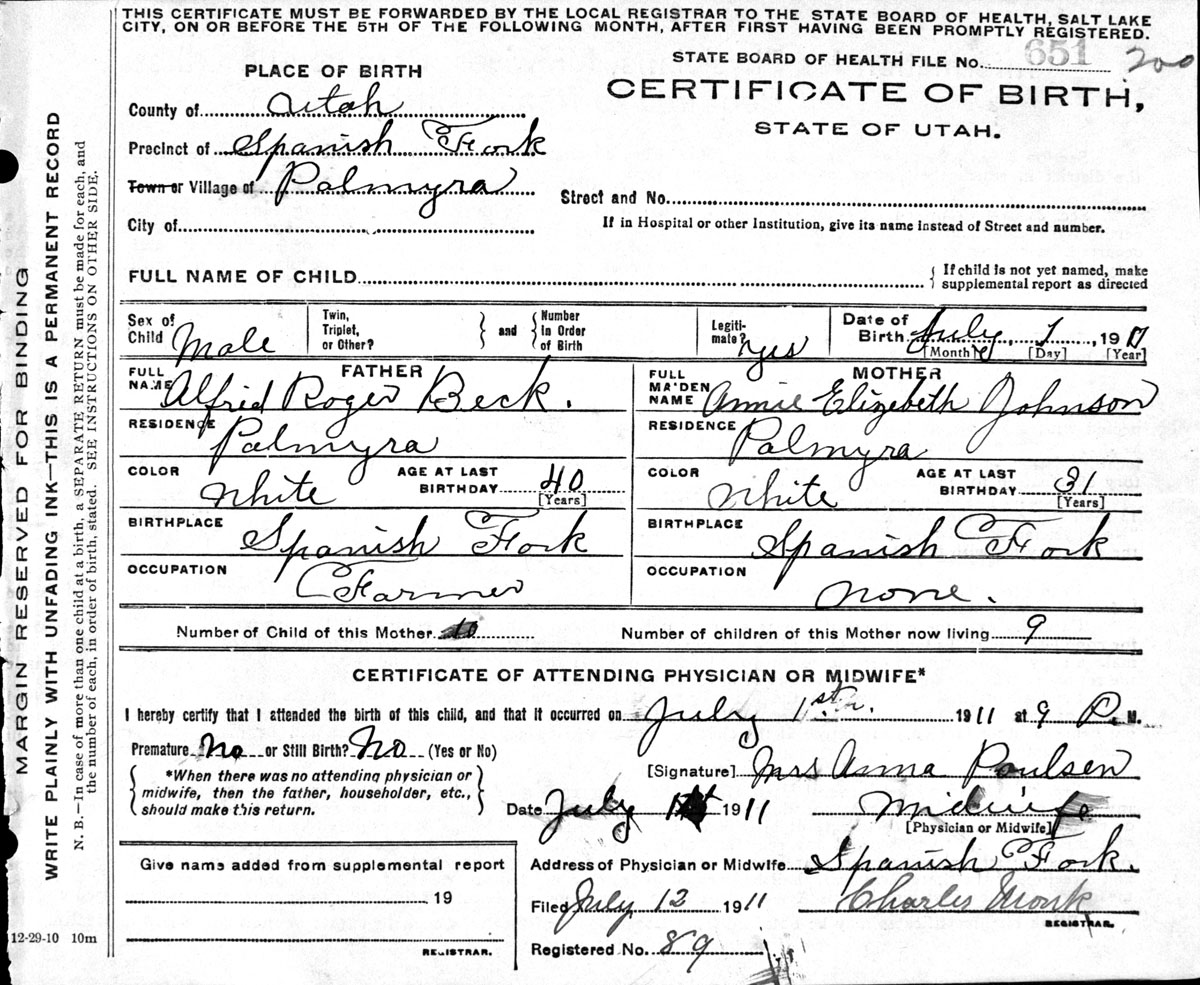 THIS CERTIFICATE MUST BE FORWARDED BY THE LOCAL REGISTRAR TO THE STATE BOARD OF HEALTH, SALT LAKE
CITY, ON OR BEFORE THE 5TH OF THE FOLLOWING MONTH, AFTER FIRST HAVING BEEN PROMPTLY REGISTERED.
STATE BOARD OF HEALTH FILE No. 651 200
PLACE OF BIRTH
CERTIFICATE OF BIRTH,
STATE OF UTAH.
County of Utah
Precinct of Spanish Fork
Town or Village of Palmyra
Street and No.
City of
If in Hospital or other Institution, give its name instead of Street and number.
FULL NAME OF CHILD
If child is not yet named, make
supplemental report as directed
Sex of
Child Male
Twin,
Triplet,
or Other?
and
Number
in Order
of Birth
Legiti-
mate? Yes
Date of
Birth July 1, 191
[Month] [Day] [Year]
FATHER
FULL
NAME Alfred Roger Beck.
MOTHER
FULL
MAIDEN
NAME Annie Elizebeth Johnson
RESIDENCE Palmyra
RESIDENCE Palmyra
COLOR White
AGE AT LAST
BIRTHDAY 40
[Years]
COLOR White
AGE AT LAST
BIRTHDAY 31
[Years]
BIRTHPLACE Spanish Fork
BIRTHPLACE Spanish Fork
OCCUPATION Farmer
OCCUPATION None.
Number of Child of this Mother 10
Number of children of this Mother now living 9
CERTIFICATE OF ATTENDING PHYSICIAN OR MIDWIFE*
I hereby certify that I attended the birth of this child, and that it occurred on July 1st. 1911 at 9 P. M.
Premature No or Still Birth? No (Yes or No)
*When there was no attending physician or
midwife, then the father, householder, etc.,
should make this return.
[Signature] Mrs Anna Poulsen
Date July 1911
Midwife
[Physician or Midwife]
Address of Physician or Midwife Spanish Fork.
Filed July 12 1911
Charles Monk
REGISTRAR.
Registered No. 89
Give name added from supplemental report
19
REGISTRAR.
12-29-10 10m
MARGIN RESERVED FOR BINDING
WRITE PLAINLY WITH UNFADING INK—THIS IS A PERMANENT RECORD
N. B.—In case of more than one child at a birth, a SEPARATE RETURN must be made for each, and
the number of each, in order of birth, stated. SEE INSTRUCTIONS ON OTHER SIDE.